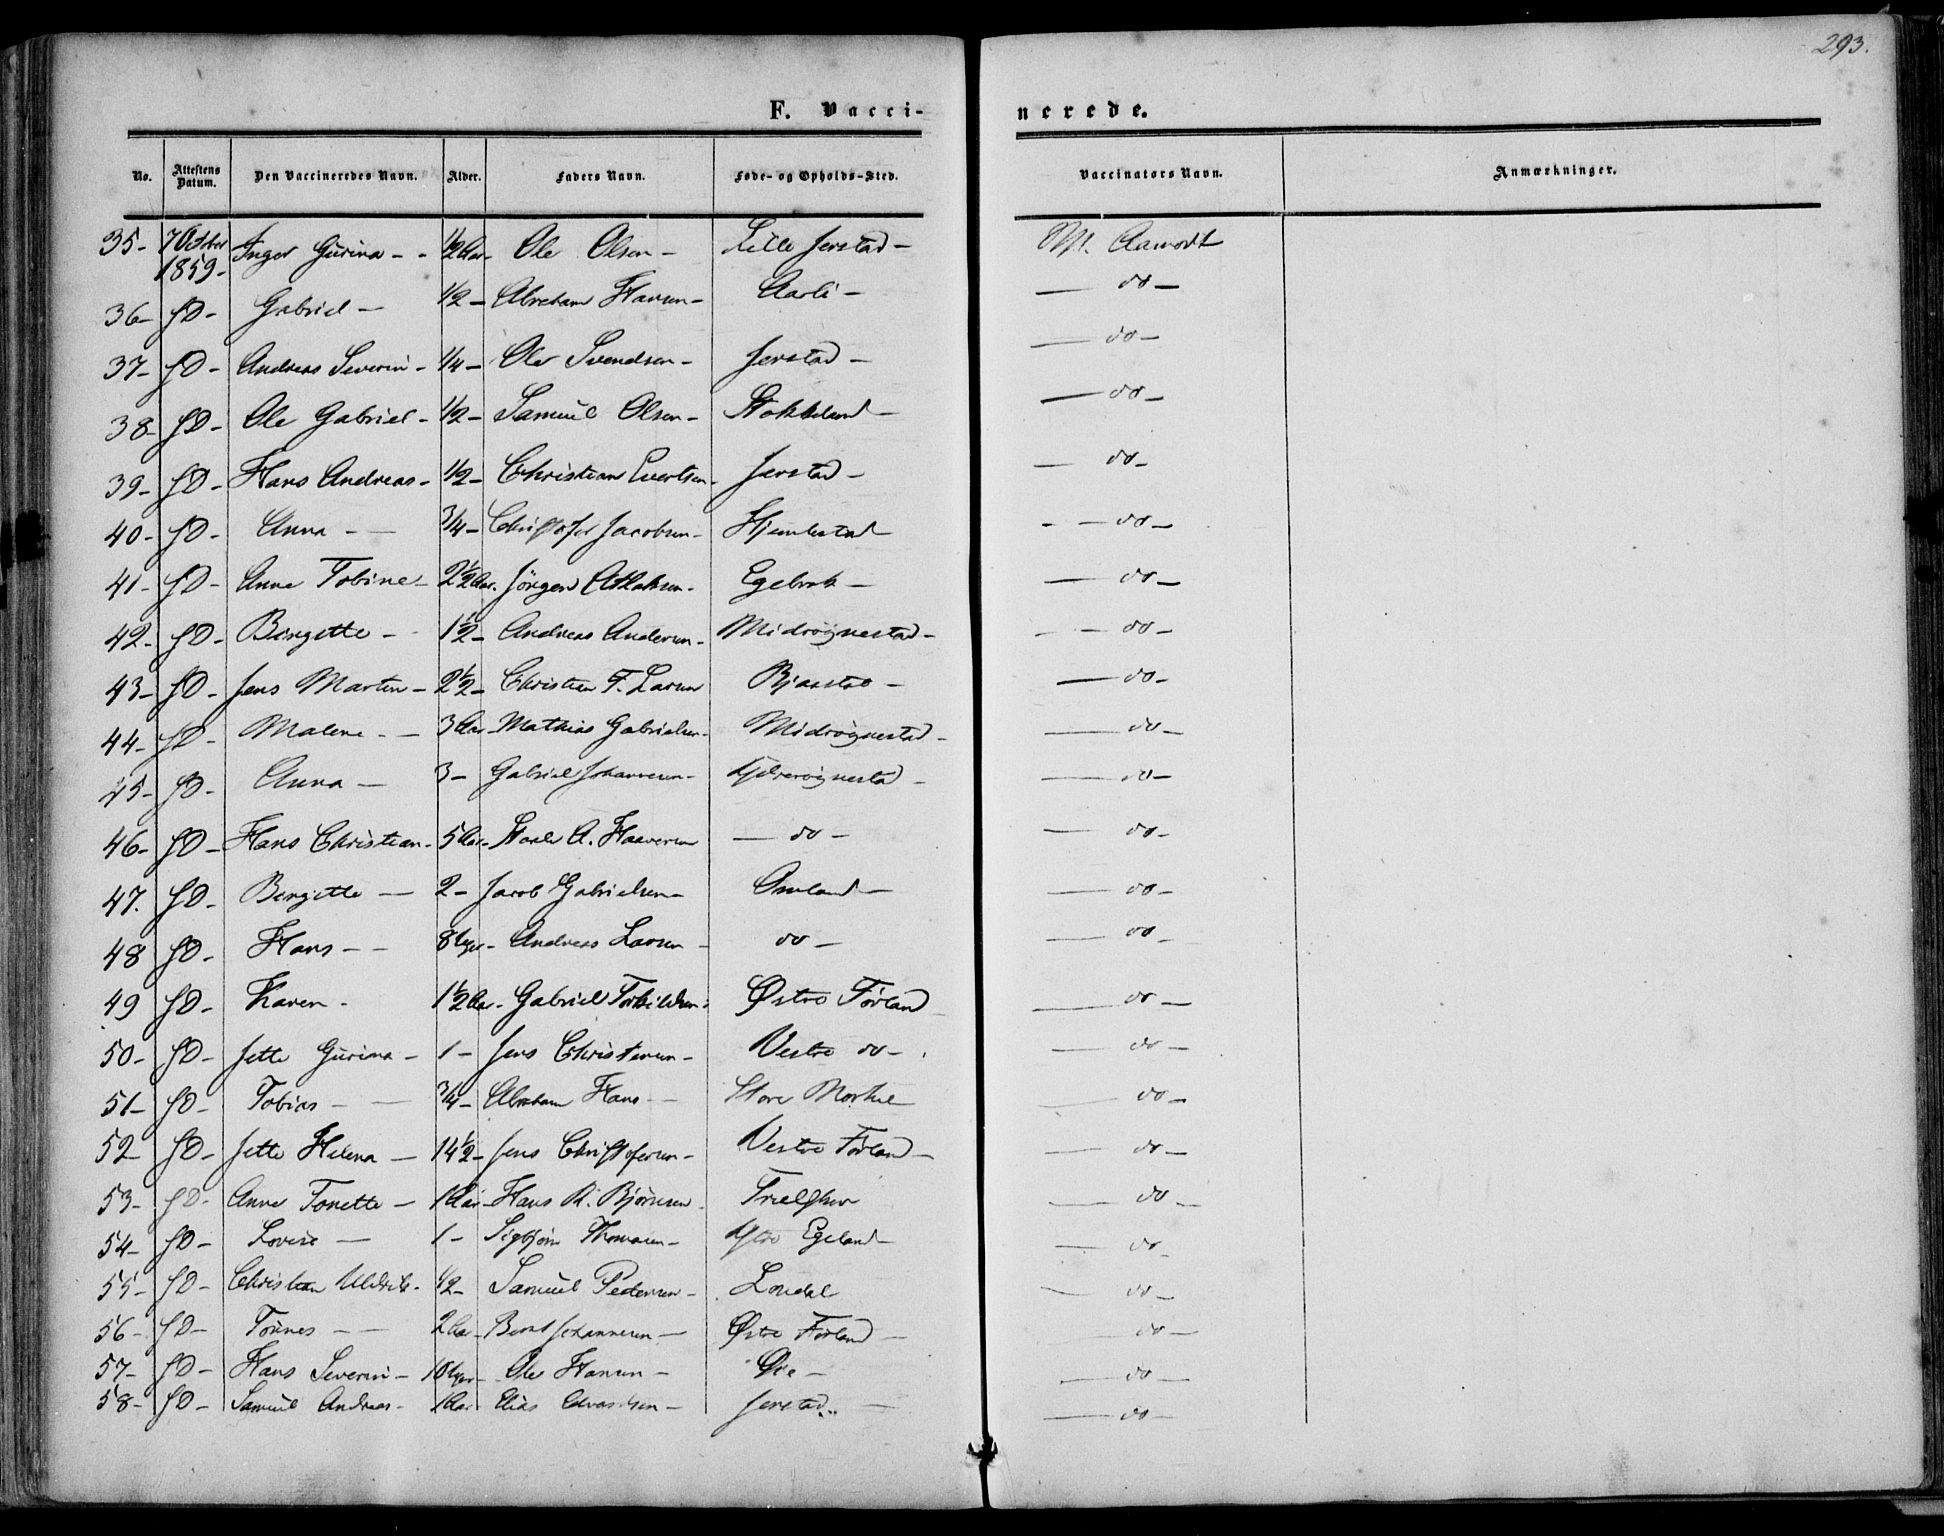 293.
F. Vaccinerede.
No. Attestens Datum. Den Vaccineredes Navn. Alder. Faders Navn. Føde- og Opholds-Sted. Vaccinators Navn. Anmærkninger.
35- 7 October 1859- Inger Gurina - - 1/2 Aar- Ole Olsen - Lille Jerstad - M. Aamodt
36- SD- Gabriel - 1/2 - Abraham Hansen - Aarli - - do -
37- SD- Andreas Severin - 1/4 - Ole Svendsen - Jerstad - - do -
38- SD- Ole Gabriel - 1/2 - Samuel Olsen - Stokkeland - - do -
39- SD- Hans Andreas - 1/2 - Christian Evertsen - Jerstad - - do -
40- SD- Anna - - 3/4 - Christofer Jacobsen - Hjembestad - - do -
41- SD- Anne Tobine - 2 1/2 Aar. Jörgen - Egebak - - do -
42- SD- Bergitte - 1 1/2 - Andreas Andersen - Midrøgnestad - - do -
43- SD- Jens Martin - 2 1/2 - Christian F. Larsen - - do -
44- SD- Malene - - 3 Aar - Mathias Gabrielsen - Midrøgnestad - - do -
45- SD- Anna - 3 - Gabriel Johannesen - - do -
46- SD- Hans Christian - 5 Aar - A. - do - - do -
47. SD- Bergitte - 2 - Jacob Gabrielsen - Omland - - do -
48 SD- Hans - - 8 Uger - Andreas Larsen - do - - do -
49 SD- Karen - 1 1/2 Aar - Gabriel Torkildsen - Østre Førland - do -
50- SD- Jette Gurina - 1 - Jens Christensen - Vestre do - - do -
51- SD- Tobias - - 3/4 - Abraham Hans - - Store - do -
52 SD- Jette Helena - 14 1/2 - Jens Christofersen - Vestre Førland - - do -
53- SD- Anne Tonette - 1 Aar - Hans R. Björnsen - do -
54- SD- Lovise - 1 - Sigbjörn Thomasen - Egeland - - do -
55- SD- Christian Uldrik - 1/2 - Samuel Pedersen - Londal - do -
56- SD- Tönnes - - 2 Aar - Bernt Johannesen - Østre Førland - - do -
57- SD- Hans Severin - 10 Uger - Ole Hansen - Øie - - do -
58- SD- Samuel Andreas - 1 Aar Elias Edvardsen - Jerstad - - do -